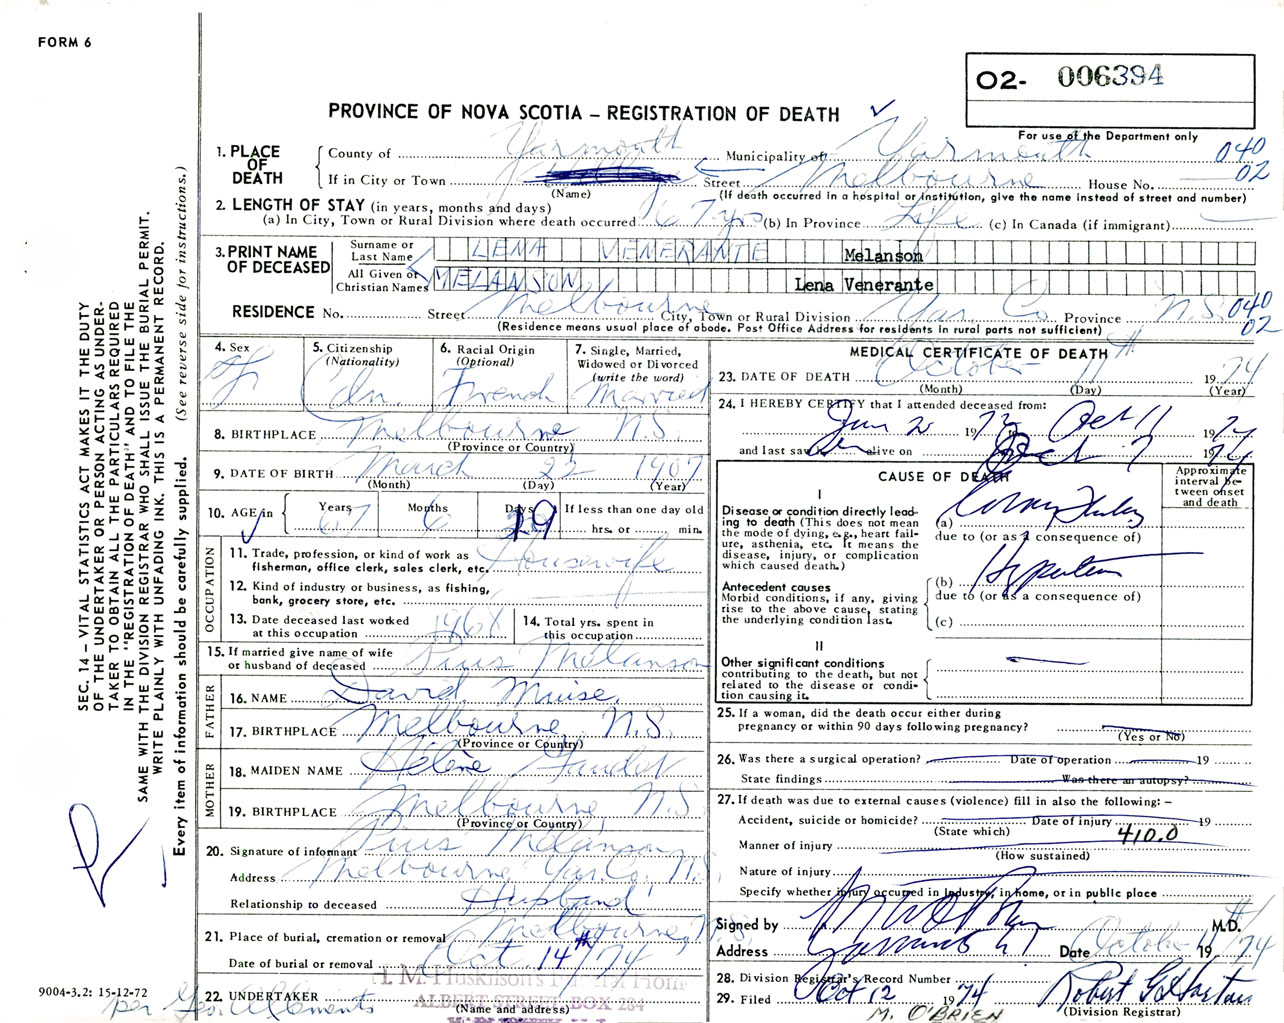 FORM 6
O2- 006394
PROVINCE OF NOVA SCOTIA – REGISTRATION OF DEATH
For use of the Department only
1. PLACE OF DEATH
County of Yarmouth Municipality of Yarmouth 040
If in City or Town Street Melbourne House No. 02
(Name) (If death occurred in a hospital or institution, give the name instead of street and number)
2. LENGTH OF STAY (in years, months and days)
(a) In City, Town or Rural Division where death occurred 67 yrs (b) In Province Life (c) In Canada (if immigrant)
3. PRINT NAME OF DECEASED
Surname or Last Name LENA VENERANTE Melanson
All Given or Christian Names MELANSON Lena Venerante
RESIDENCE No. Street Melbourne City, Town or Rural Division Yar. Co. Province N.S. 040
02
(Residence means usual place of abode. Post Office Address for residents in rural parts not sufficient)
4. Sex F
5. Citizenship (Nationality) Cdn
6. Racial Origin (Optional) French
7. Single, Married, Widowed or Divorced (write the word) Married
8. BIRTHPLACE Melbourne N.S.
(Province or Country)
9. DATE OF BIRTH March 22 1907
(Month) (Day) (Year)
10. AGE in Years 67 Months 6 Days 19 If less than one day old
hrs. or min.
OCCUPATION
11. Trade, profession, or kind of work as fisherman, office clerk, sales clerk, etc. Housewife
12. Kind of industry or business, as fishing, bank, grocery store, etc.
13. Date deceased last worked at this occupation
14. Total yrs. spent in this occupation
15. If married give name of wife or husband of deceased Pius Melanson
FATHER
16. NAME David Muise
17. BIRTHPLACE Melbourne, N.S.
(Province or Country)
MOTHER
18. MAIDEN NAME Hélène
19. BIRTHPLACE Melbourne, N.S.
(Province or Country)
20. Signature of informant Pius Melanson
Address Melbourne Yar. Co. N.S.
Relationship to deceased Husband
21. Place of burial, cremation or removal Melbourne, N.S.
Date of burial or removal Oct 14th /74
22. UNDERTAKER
ALBERT STREET, BOX 234
(Name and address)
9004-3.2: 15-12-72
MEDICAL CERTIFICATE OF DEATH
23. DATE OF DEATH October 11 1974
(Month) (Day) (Year)
24. I HEREBY CERTIFY that I attended deceased from:
19 Oct 11 19
and last saw alive on Oct 19 74
CAUSE OF DEATH
Approximate interval between onset and death
I
Disease or condition directly leading to death (This does not mean the mode of dying, e.g., heart failure, asthenia, etc. It means the disease, injury, or complication which caused death.)
(a)
due to (or as a consequence of)
Antecedent causes
Morbid conditions, if any, giving rise to the above cause, stating the underlying condition last.
(b)
due to (or as a consequence of)
(c)
II
Other significant conditions contributing to the death, but not related to the disease or condition causing it.
25. If a woman, did the death occur either during pregnancy or within 90 days following pregnancy?
(Yes or No)
26. Was there a surgical operation? Date of operation 19
State findings Was there an autopsy?
27. If death was due to external causes (violence) fill in also the following: –
Accident, suicide or homicide? Date of injury 19
(State which) 410.0
Manner of injury
(How sustained)
Nature of injury
Specify whether injury occurred in industry, in home, or in public place
Signed by M.D.
Address Date October 11 19 74
28. Division Registrar's Record Number
29. Filed Oct 12 1974
(Division Registrar)
M. O'BRIEN
SEC. 14 – VITAL STATISTICS ACT MAKES IT THE DUTY
OF THE UNDERTAKER OR PERSON ACTING AS UNDER-
TAKER TO OBTAIN ALL THE PARTICULARS REQUIRED
IN THE "REGISTRATION OF DEATH" AND TO FILE THE
SAME WITH THE DIVISION REGISTRAR WHO SHALL ISSUE THE BURIAL PERMIT.
WRITE PLAINLY WITH UNFADING INK. THIS IS A PERMANENT RECORD.
Every item of information should be carefully supplied. (See reverse side for instructions.)